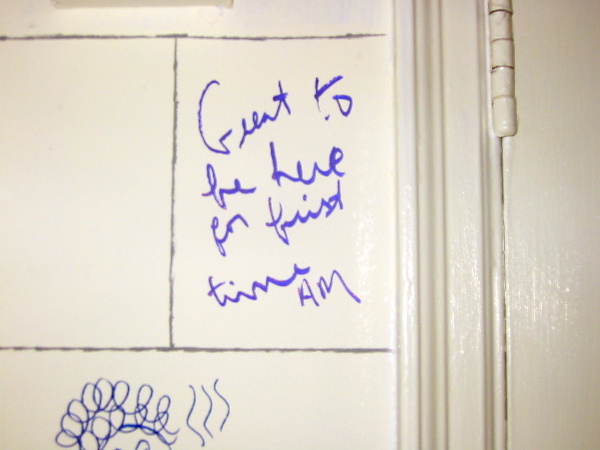 Great to
be here
for first
time AM